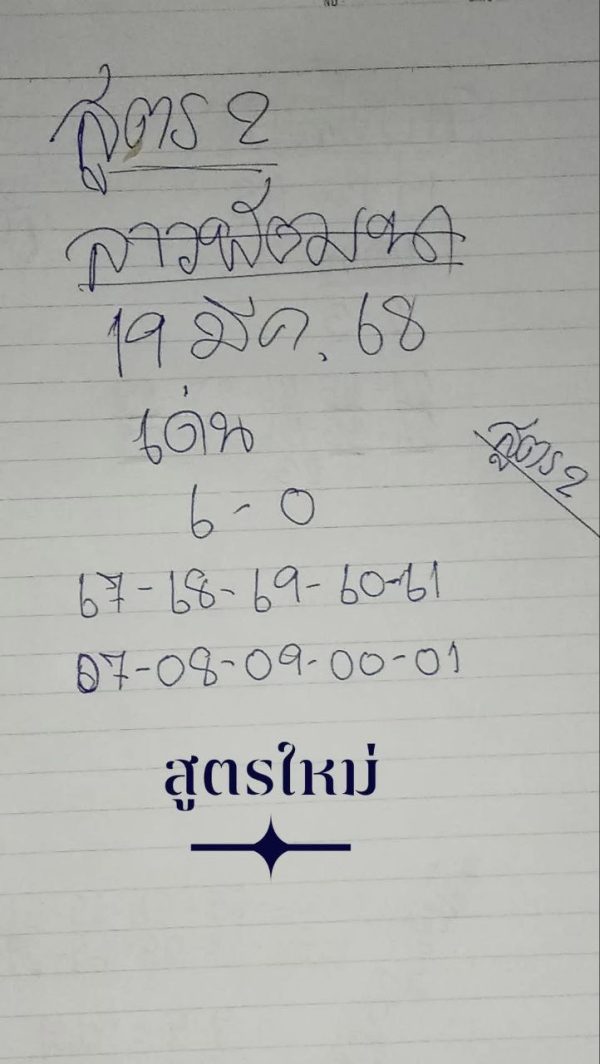 สูตร 2
ลาวพัฒนา
19 มีค. 68
เด่น
6 - 0
สูตร 2
67-68-69-60-61
07-08-09-00-01
สูตรใหม่